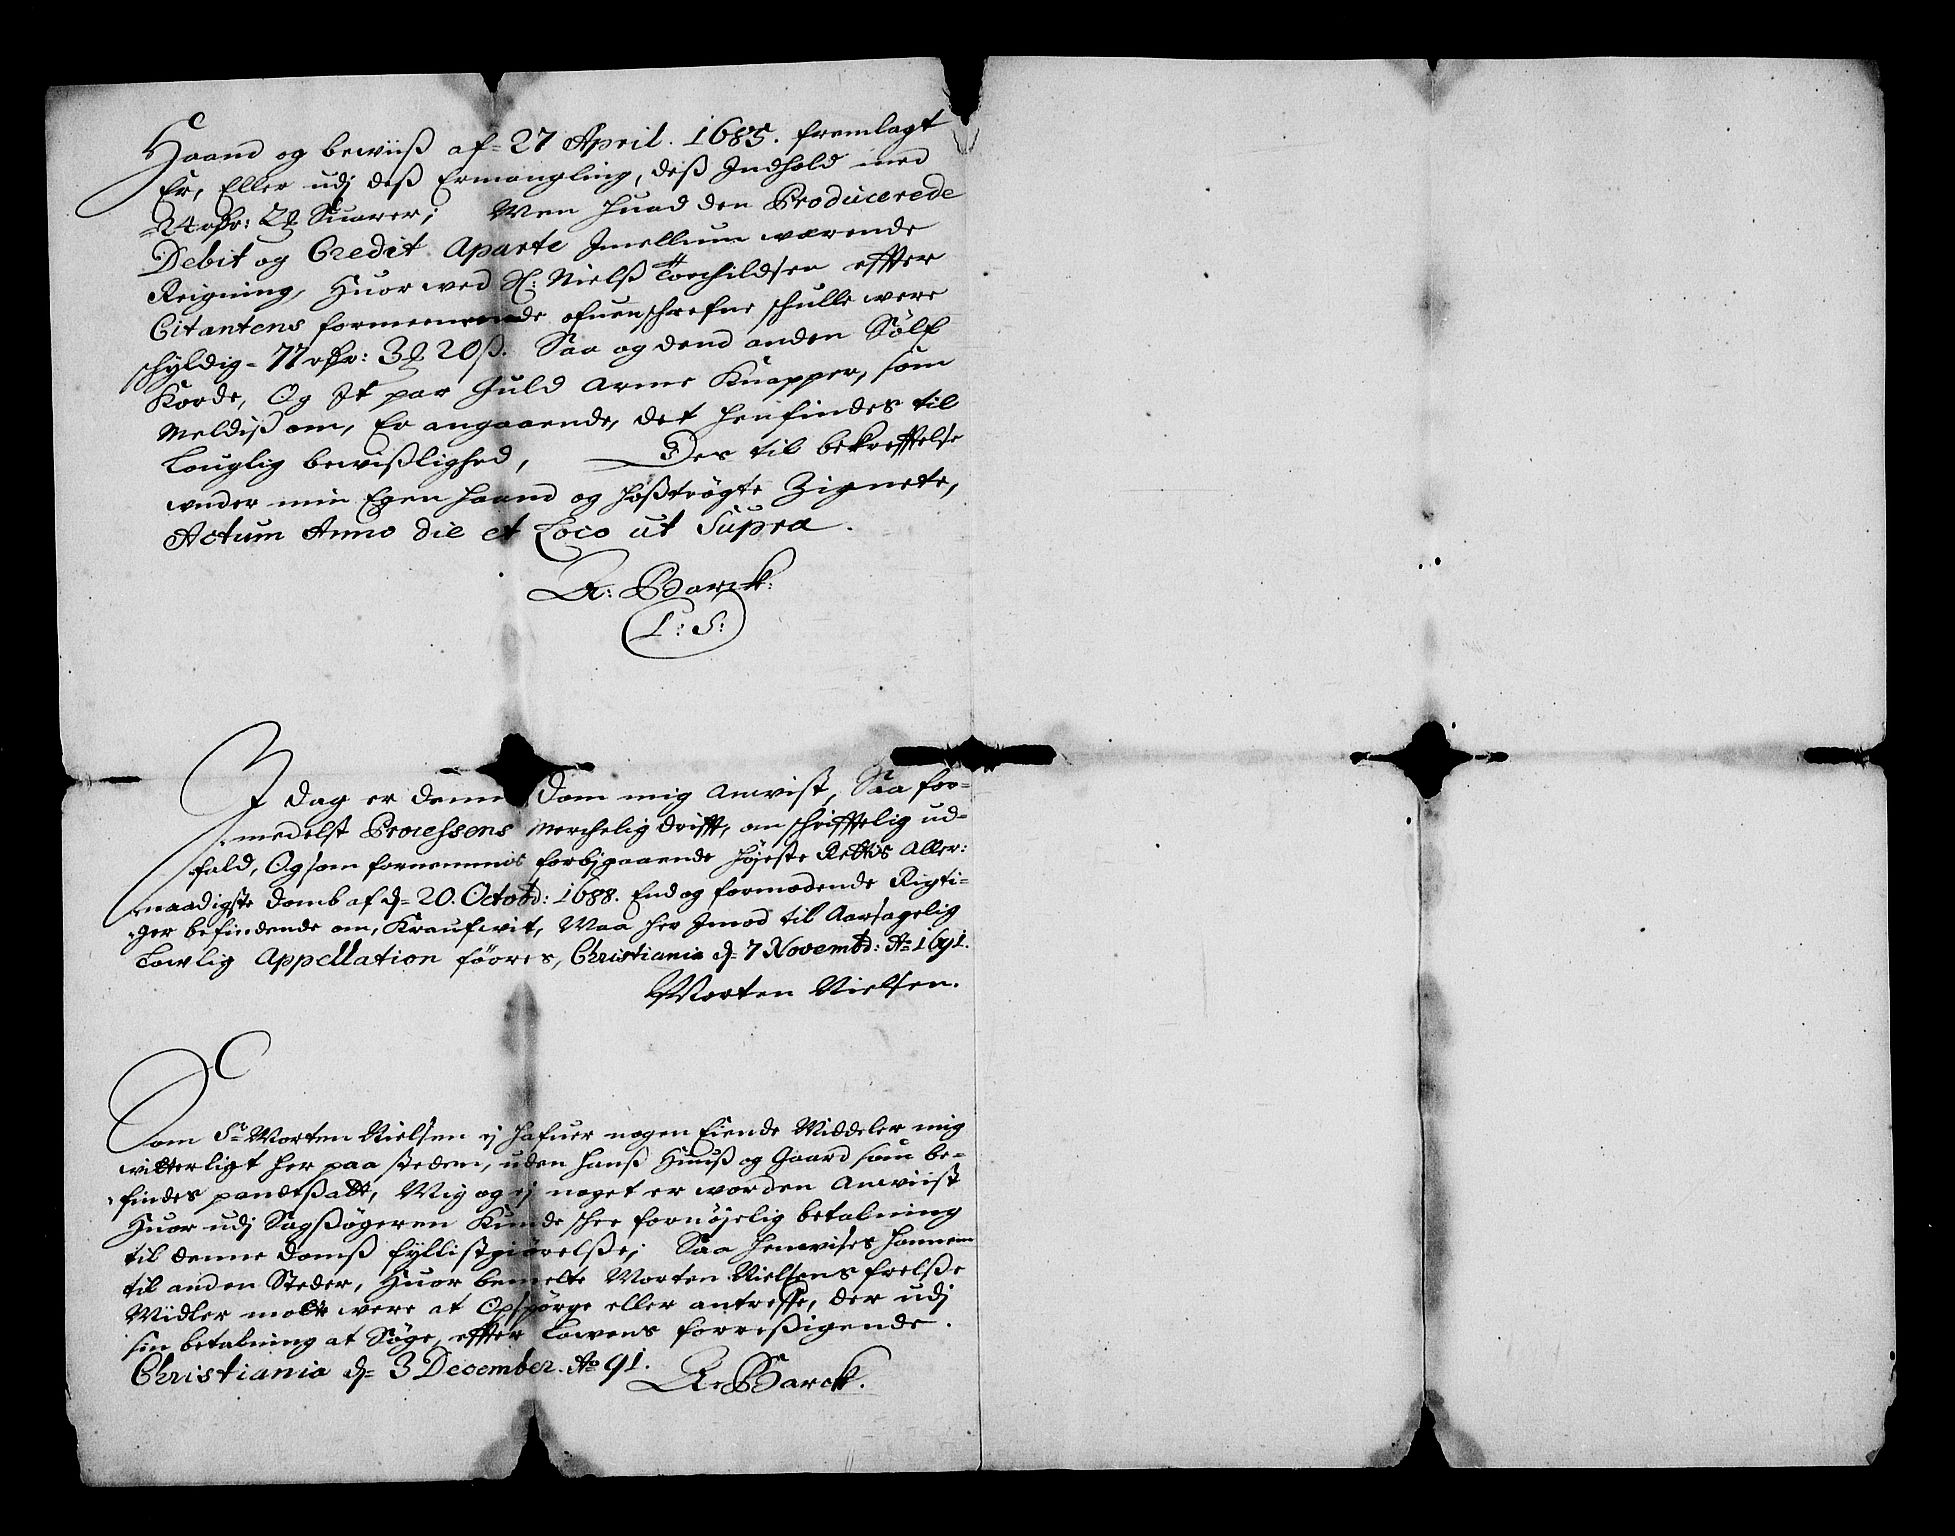 Haand og bewiiß af= 27 April. 1685. fremlagt
Er, Eller udj deß Ermangling, deß Indhold med
24 rdr: 2 ₰ Suarer; Men huad den Producerede
Debit og Credit Aparte Imellum værende
Reigning, Huor wed S: Nielß Torchildsen effter
Citantens formeenende ofuenschrefne schulle were
schyldig = 77 rdr: 3 ₰ 20 ß. Saa og dend anden Sölf
Korde, Og It par Guld Arme Knapper, som
meldiß om, Er angaaende, det henfindes til
Louglig bewißlighed, Des til bekrefftelse
under min Egen haand og hoßtrögte Zignete,
Actum Anno die et Loco ut Supra.
A: Barck:
L: S:
I dag er denne Dom mig anvist, Saa for=
medelst Processens merchelig drifft, om schrifftelig ud=
fald, Og som fornemmis forbjgaaende höjeste Rettis Aller:
naadigste domb af d= 20. Octobr: 1688. End og formodende Rigti=
ger befindende om, Maa her Imod til Aarsagelig
Lowlig Appellation föores, Christiania d= 7 Novembr: Ao 1691.
Morten Nielsen.
Som Sr Morten Nielsen ej hafuer nogen Eiende Middeler mig
witterligt her paa steden, uden hanß Huuß og Gaard som be=
findes pandtßatt, Mig og ej noget er worden Anviist
Huor udj Sagßögeren Kunde schee fornöjelig betalning
til denne Domß fyllistgiörelße; Saa henvises hannem
til anden Steder, Huor bemelte Morten Nielsens frelße
Midler motte were at Opspörge eller antreffe, der udj
sin betalning at Söge, effter Lowens forreßigende.
Christiania d= 3 December. Ao 91. A: Barck.